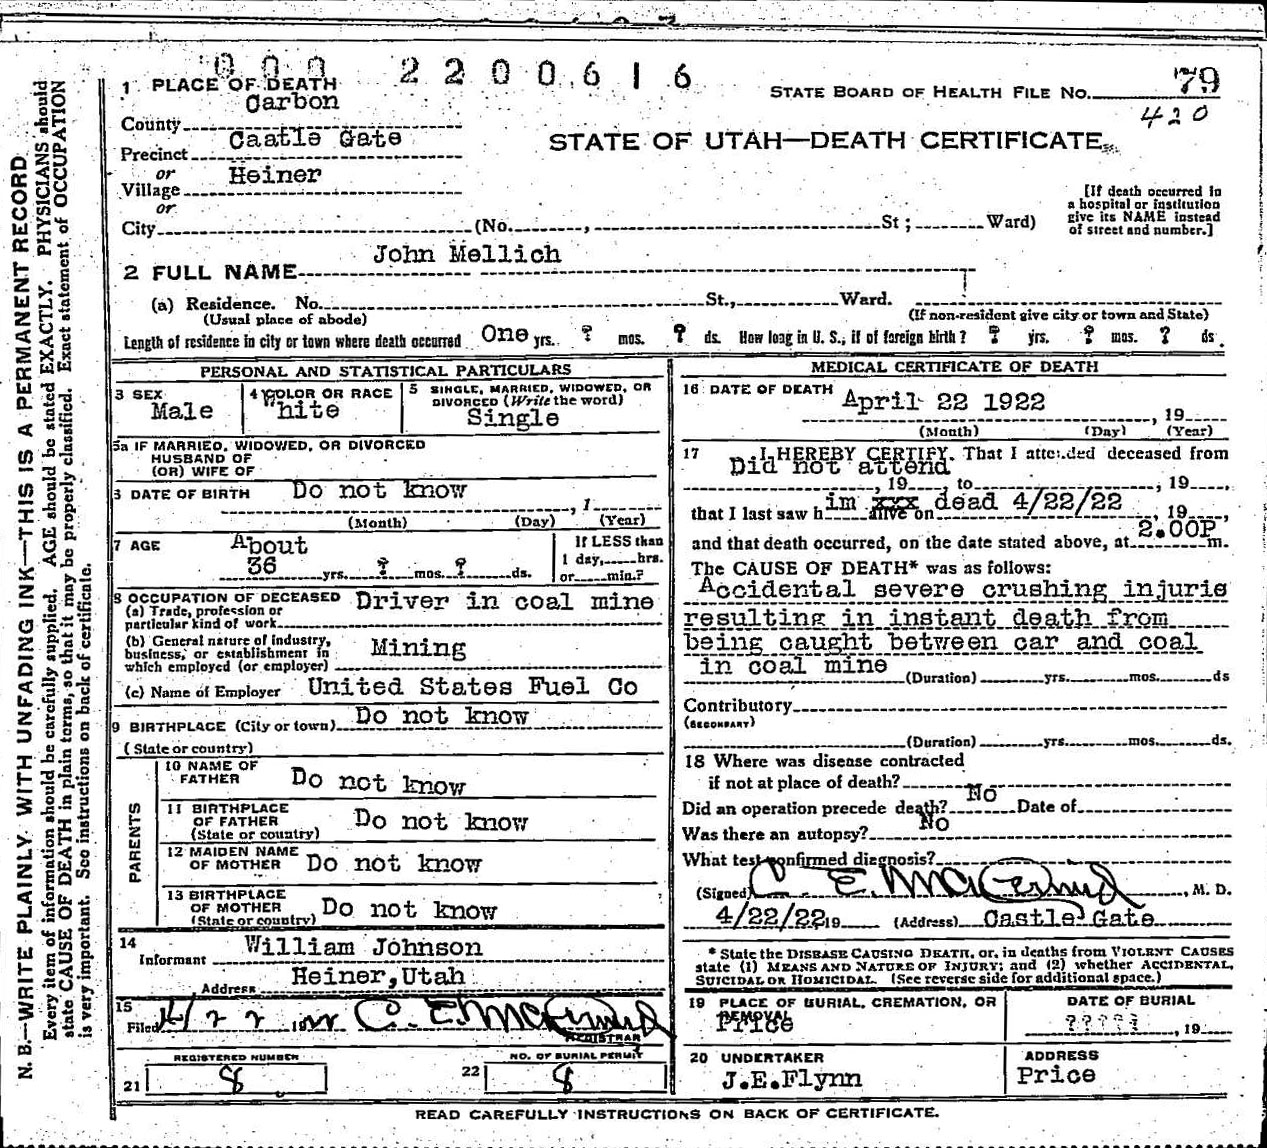 000 2200616
1 PLACE OF DEATH
STATE BOARD OF HEALTH FILE NO. 79
420
County Carbon
STATE OF UTAH—DEATH CERTIFICATE
Precinct Caatle Gate
or
Village Heiner
or
[If death occurred in a hospital or institution give its NAME instead of street and number.]
City (No. , St ; Ward)
2 FULL NAME John Mellich
(a) Residence. No. St., Ward.
(Usual place of abode) (If non-resident give city or town and State)
Length of residence in city or town where death occurred One yrs. ? mos. ? ds. How long in U. S., if of foreign birth? ? yrs. ? mos. ? ds.
PERSONAL AND STATISTICAL PARTICULARS
3 SEX Male
4 COLOR OR RACE White
5 SINGLE, MARRIED, WIDOWED, OR DIVORCED (Write the word) Single
5a IF MARRIED, WIDOWED, OR DIVORCED
HUSBAND OF
(OR) WIFE OF
6 DATE OF BIRTH Do not know , 1
(Month) (Day) (Year)
7 AGE About
36 yrs. ? mos. ? ds.
If LESS than
1 day, hrs.
or min.?
8 OCCUPATION OF DECEASED
(a) Trade, profession or
particular kind of work Driver in coal mine
(b) General nature of industry,
business, or establishment in
which employed (or employer) Mining
(c) Name of Employer United States Fuel Co
9 BIRTHPLACE (City or town) Do not know
(State or country)
PARENTS
10 NAME OF
FATHER Do not know
11 BIRTHPLACE
OF FATHER Do not know
(State or country)
12 MAIDEN NAME
OF MOTHER Do not know
13 BIRTHPLACE
OF MOTHER Do not know
(State or country)
14
Informant William Johnson
Address Heiner,Utah
15
Filed 4/22 1922 C. E. McDermid
REGISTRAR
REGISTERED NUMBER
21 8
NO. OF BURIAL PERMIT
22 8
MEDICAL CERTIFICATE OF DEATH
16 DATE OF DEATH April 22 1922 , 19
(Month) (Day) (Year)
17 I HEREBY CERTIFY, That I attended deceased from
Did not attend , 19 , to , 19 ,
that I last saw h im xxx alive on dead 4/22/22 , 19 ,
and that death occurred, on the date stated above, at 2.00P m.
The CAUSE OF DEATH* was as follows:
Accidental severe crushing injurie
resulting in instant death from
being caught between car and coal
in coal mine
(Duration) yrs. mos. ds
Contributory
(SECONDARY)
(Duration) yrs. mos. ds.
18 Where was disease contracted
if not at place of death?
Did an operation precede death? No Date of
Was there an autopsy? No
What test confirmed diagnosis?
(Signed) C. E. McDermid , M. D.
4/22/22 19 (Address) Castle Gate
* State the DISEASE CAUSING DEATH, or, in deaths from VIOLENT CAUSES
state (1) MEANS AND NATURE OF INJURY; and (2) whether ACCIDENTAL,
SUICIDAL OR HOMICIDAL. (See reverse side for additional space.)
19 PLACE OF BURIAL, CREMATION, OR
REMOVAL Price
DATE OF BURIAL
????? , 19
20 UNDERTAKER
J.E.Flynn
ADDRESS
Price
READ CAREFULLY INSTRUCTIONS ON BACK OF CERTIFICATE.
N. B.—WRITE PLAINLY WITH UNFADING INK—THIS IS A PERMANENT RECORD
Every item of information should be carefully supplied. AGE should be stated EXACTLY. PHYSICIANS should
state CAUSE OF DEATH in plain terms, so that it may be properly classified. Exact statement of OCCUPATION
is very important. See instructions on back of certificate.